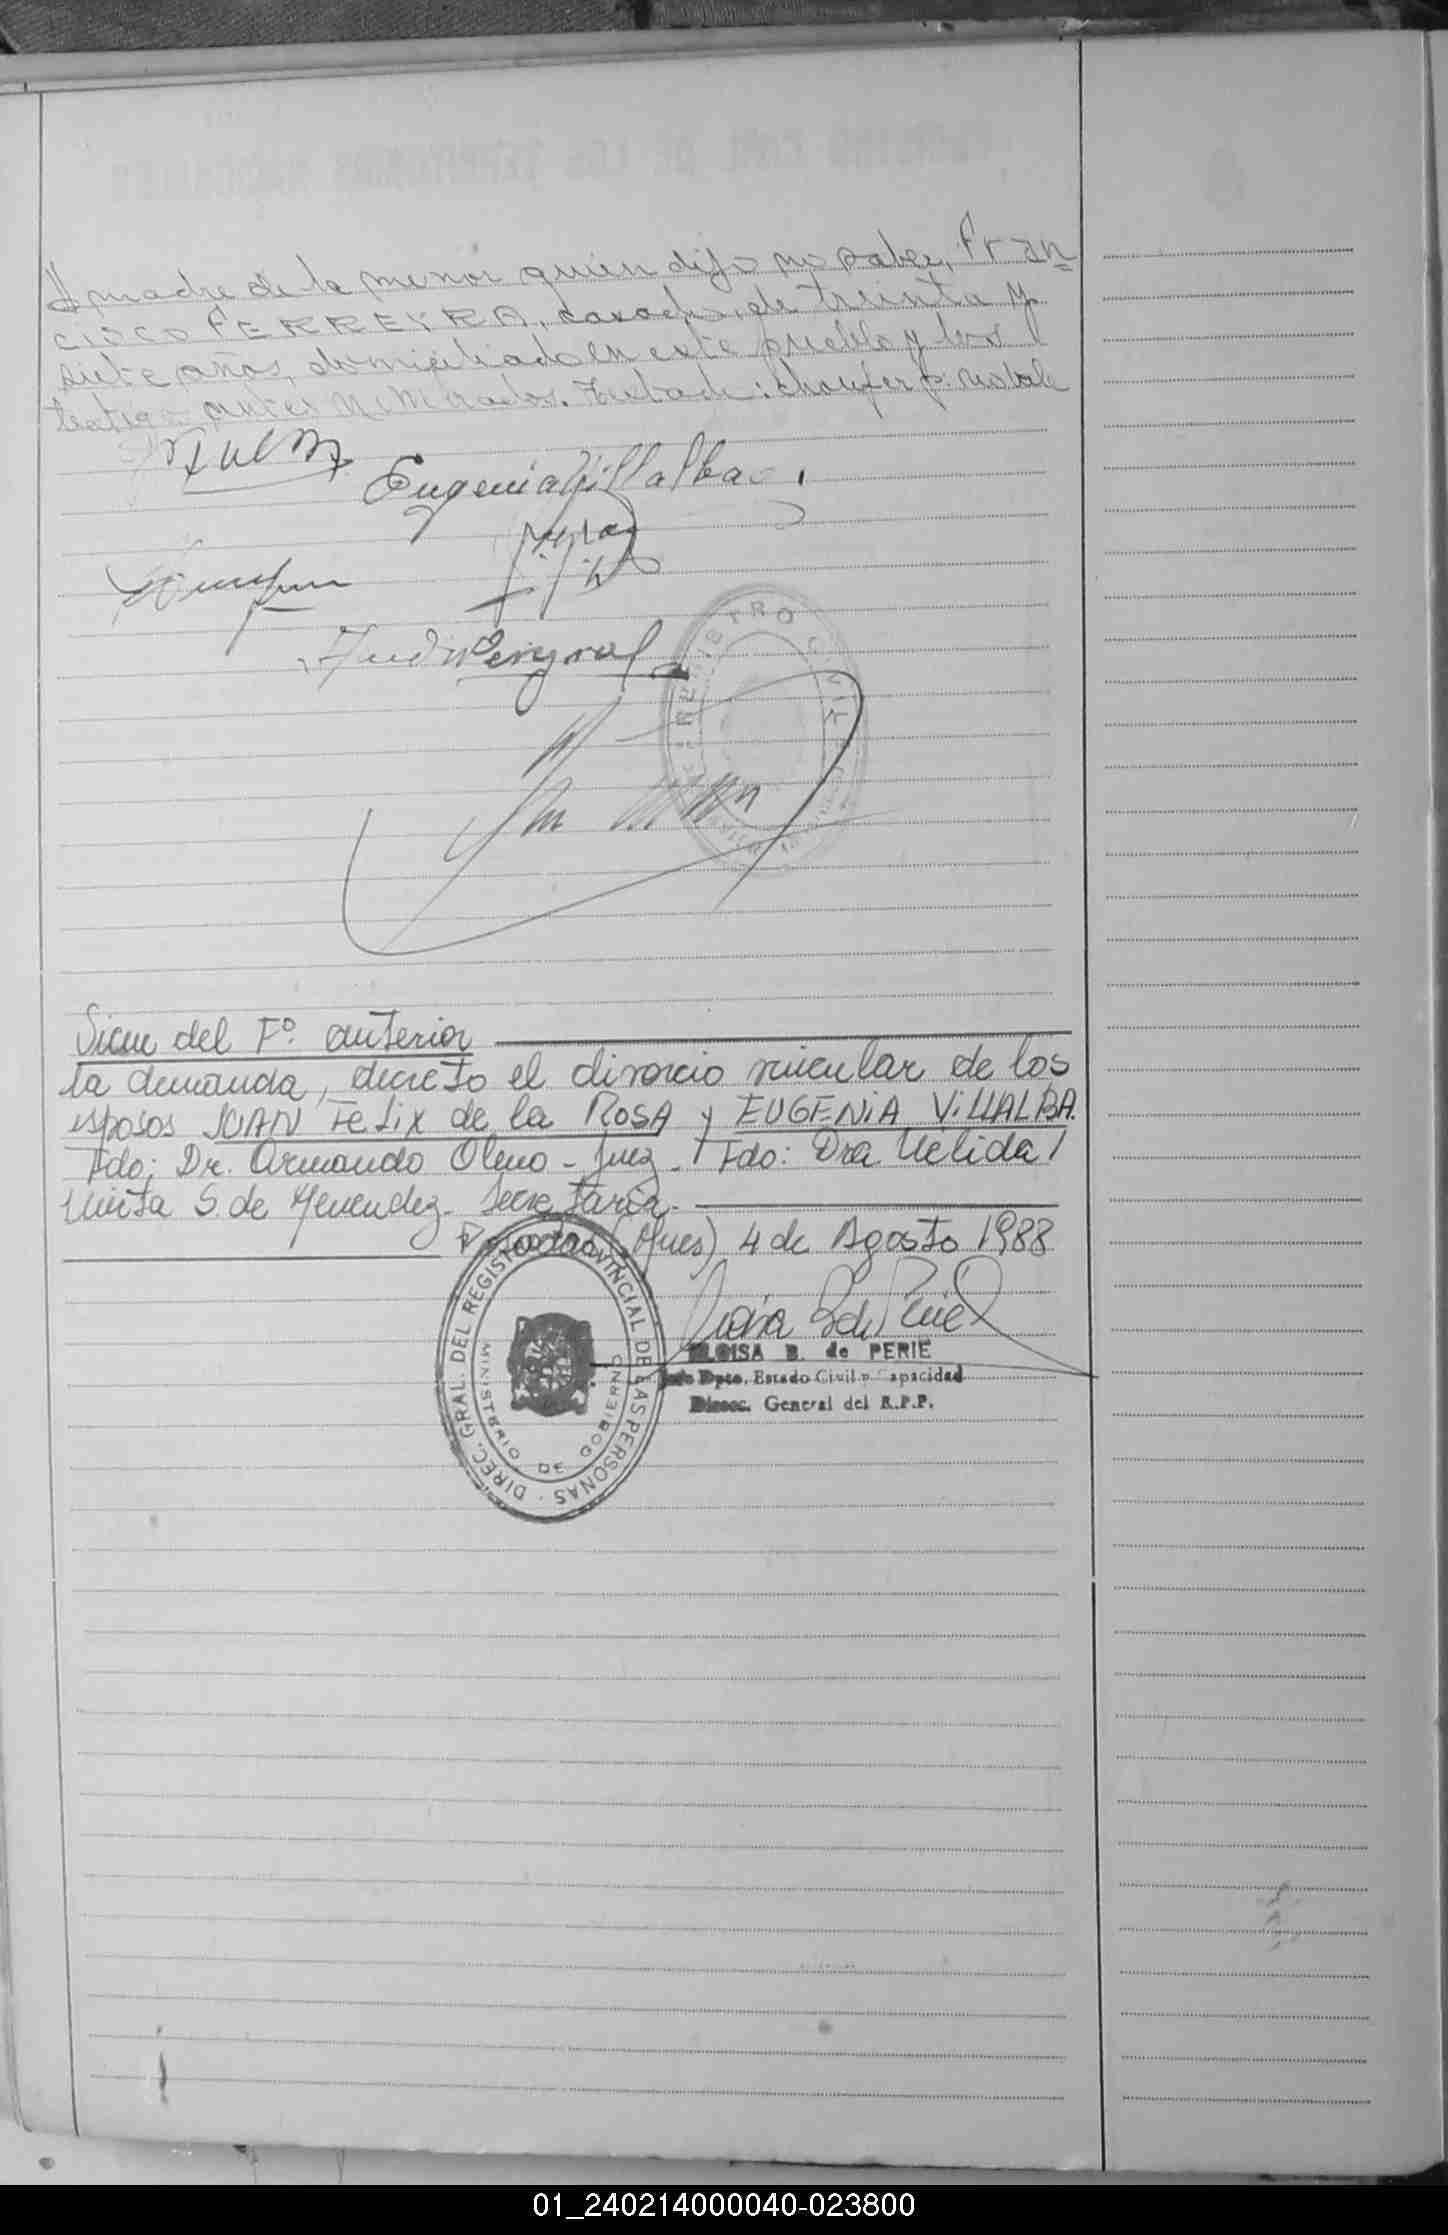 madre de la menor quien dijo no saber, Fran
cisco FERREYRA, casado, de treinta y
siete años, domiciliado en este pueblo y los
testigos antes nombrados. Testado: choufer. no vale
Eugenia Villalba
REGISTRO CIVIL
Sigue del Fº. anterior
la demanda, decreto el divorcio vincular de los
esposos JUAN Felix de la ROSA y EUGENIA VILLALBA.
Fdo: Dr. Armando Olmo - Juez - Fdo: Dra Nelida
S. de Menendez - Secretaria -
Posadas (Mnes) 4 de Agosto 1988
DIREC. GRAL. DEL REGISTRO PROVINCIAL DE LAS PERSONAS
MINISTERIO DE GOBIERNO
ELOISA B. de PERIE
Jefe Dpto. Estado Civil y Capacidad
Direcc. General del R.P.P.
01_240214000040-023800